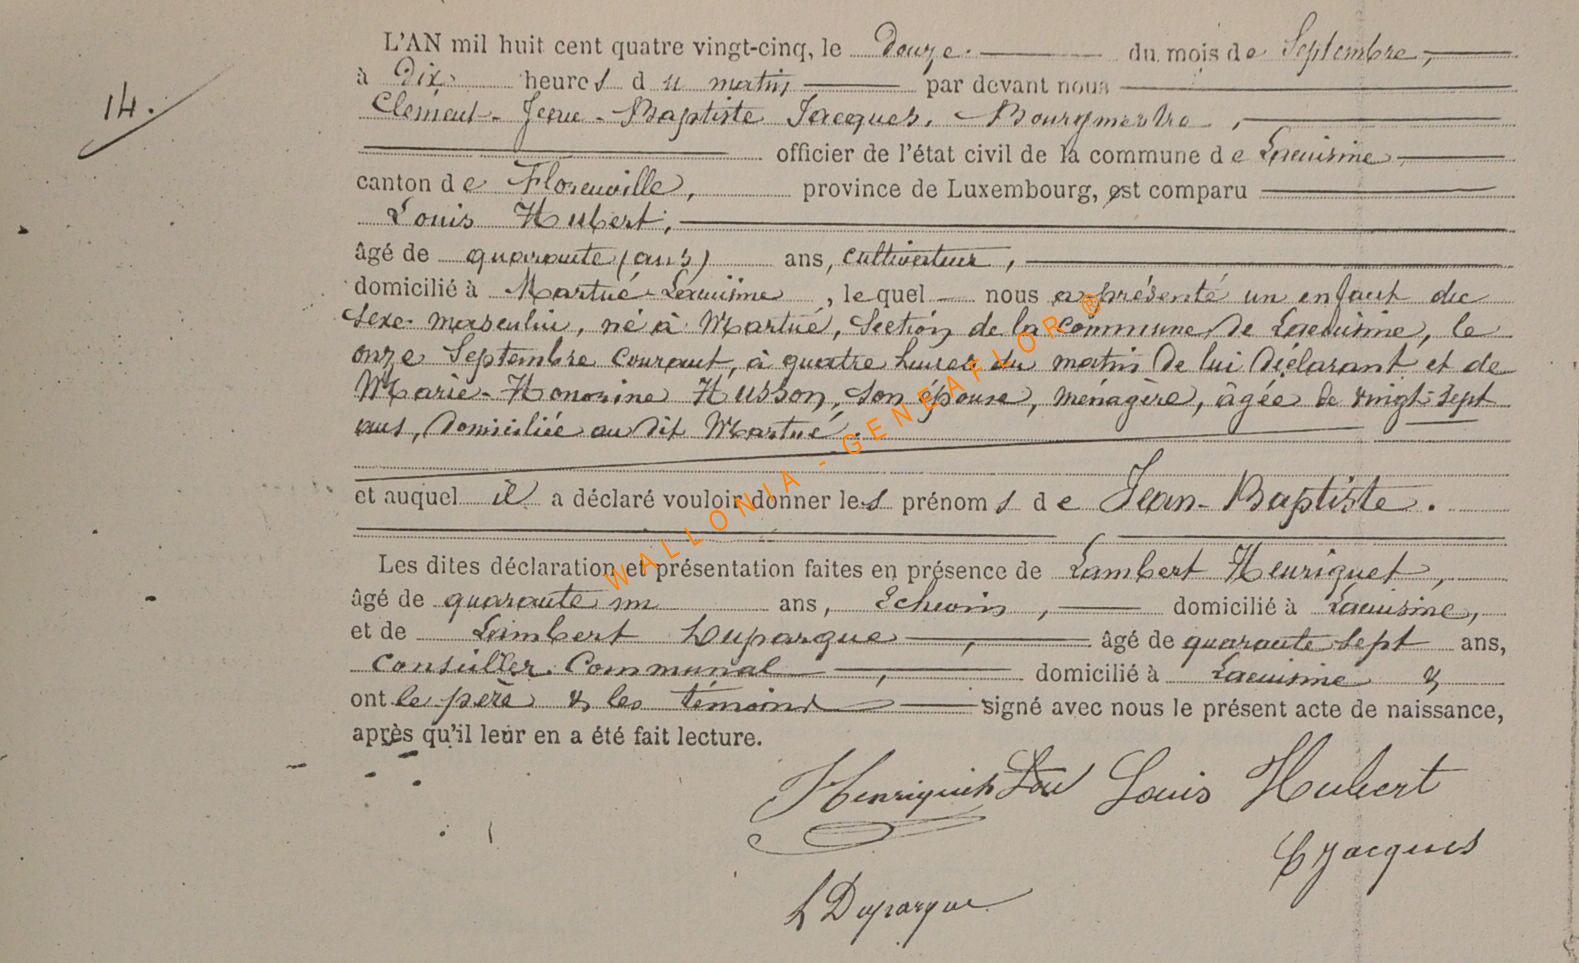 L'AN mil huit cent quatre vingt-cinq, le Douze. du mois de Septembre,
14.
à Dix heures du matin par devant nous
Clément-Jean-Baptiste Jacques, Bourgmestre,
officier de l'état civil de la commune de Lacuisine
canton de Florenville, province de Luxembourg, est comparu
Louis Hubert,
âgé de quarante (ans) ans, cultivateur,
domicilié à Martué-Lacuisine, lequel nous a présenté un enfant du
sexe masculin, né à Martué, Section de la commune de Lacuisine, le
onze Septembre courant, à quatre heures du matin de lui déclarant et de
Marie-Honorine Husson, son épouse, ménagère, âgée de vingt-sept
ans, domiciliée au dit Martué.
et auquel il a déclaré vouloir donner les prénoms de Jean-Baptiste.
Les dites déclaration et présentation faites en présence de Lambert Henriquet,
âgé de quarante un ans, Echevin, domicilié à Lacuisine,
et de Lambert Duparque, âgé de quarante sept ans,
Conseiller Communal, domicilié à Lacuisine &
ont le père & les témoins signé avec nous le présent acte de naissance,
après qu'il leur en a été fait lecture.
Louis Hubert
Jacques
L Duparque
WALLONIA - GENEAFLOR ®